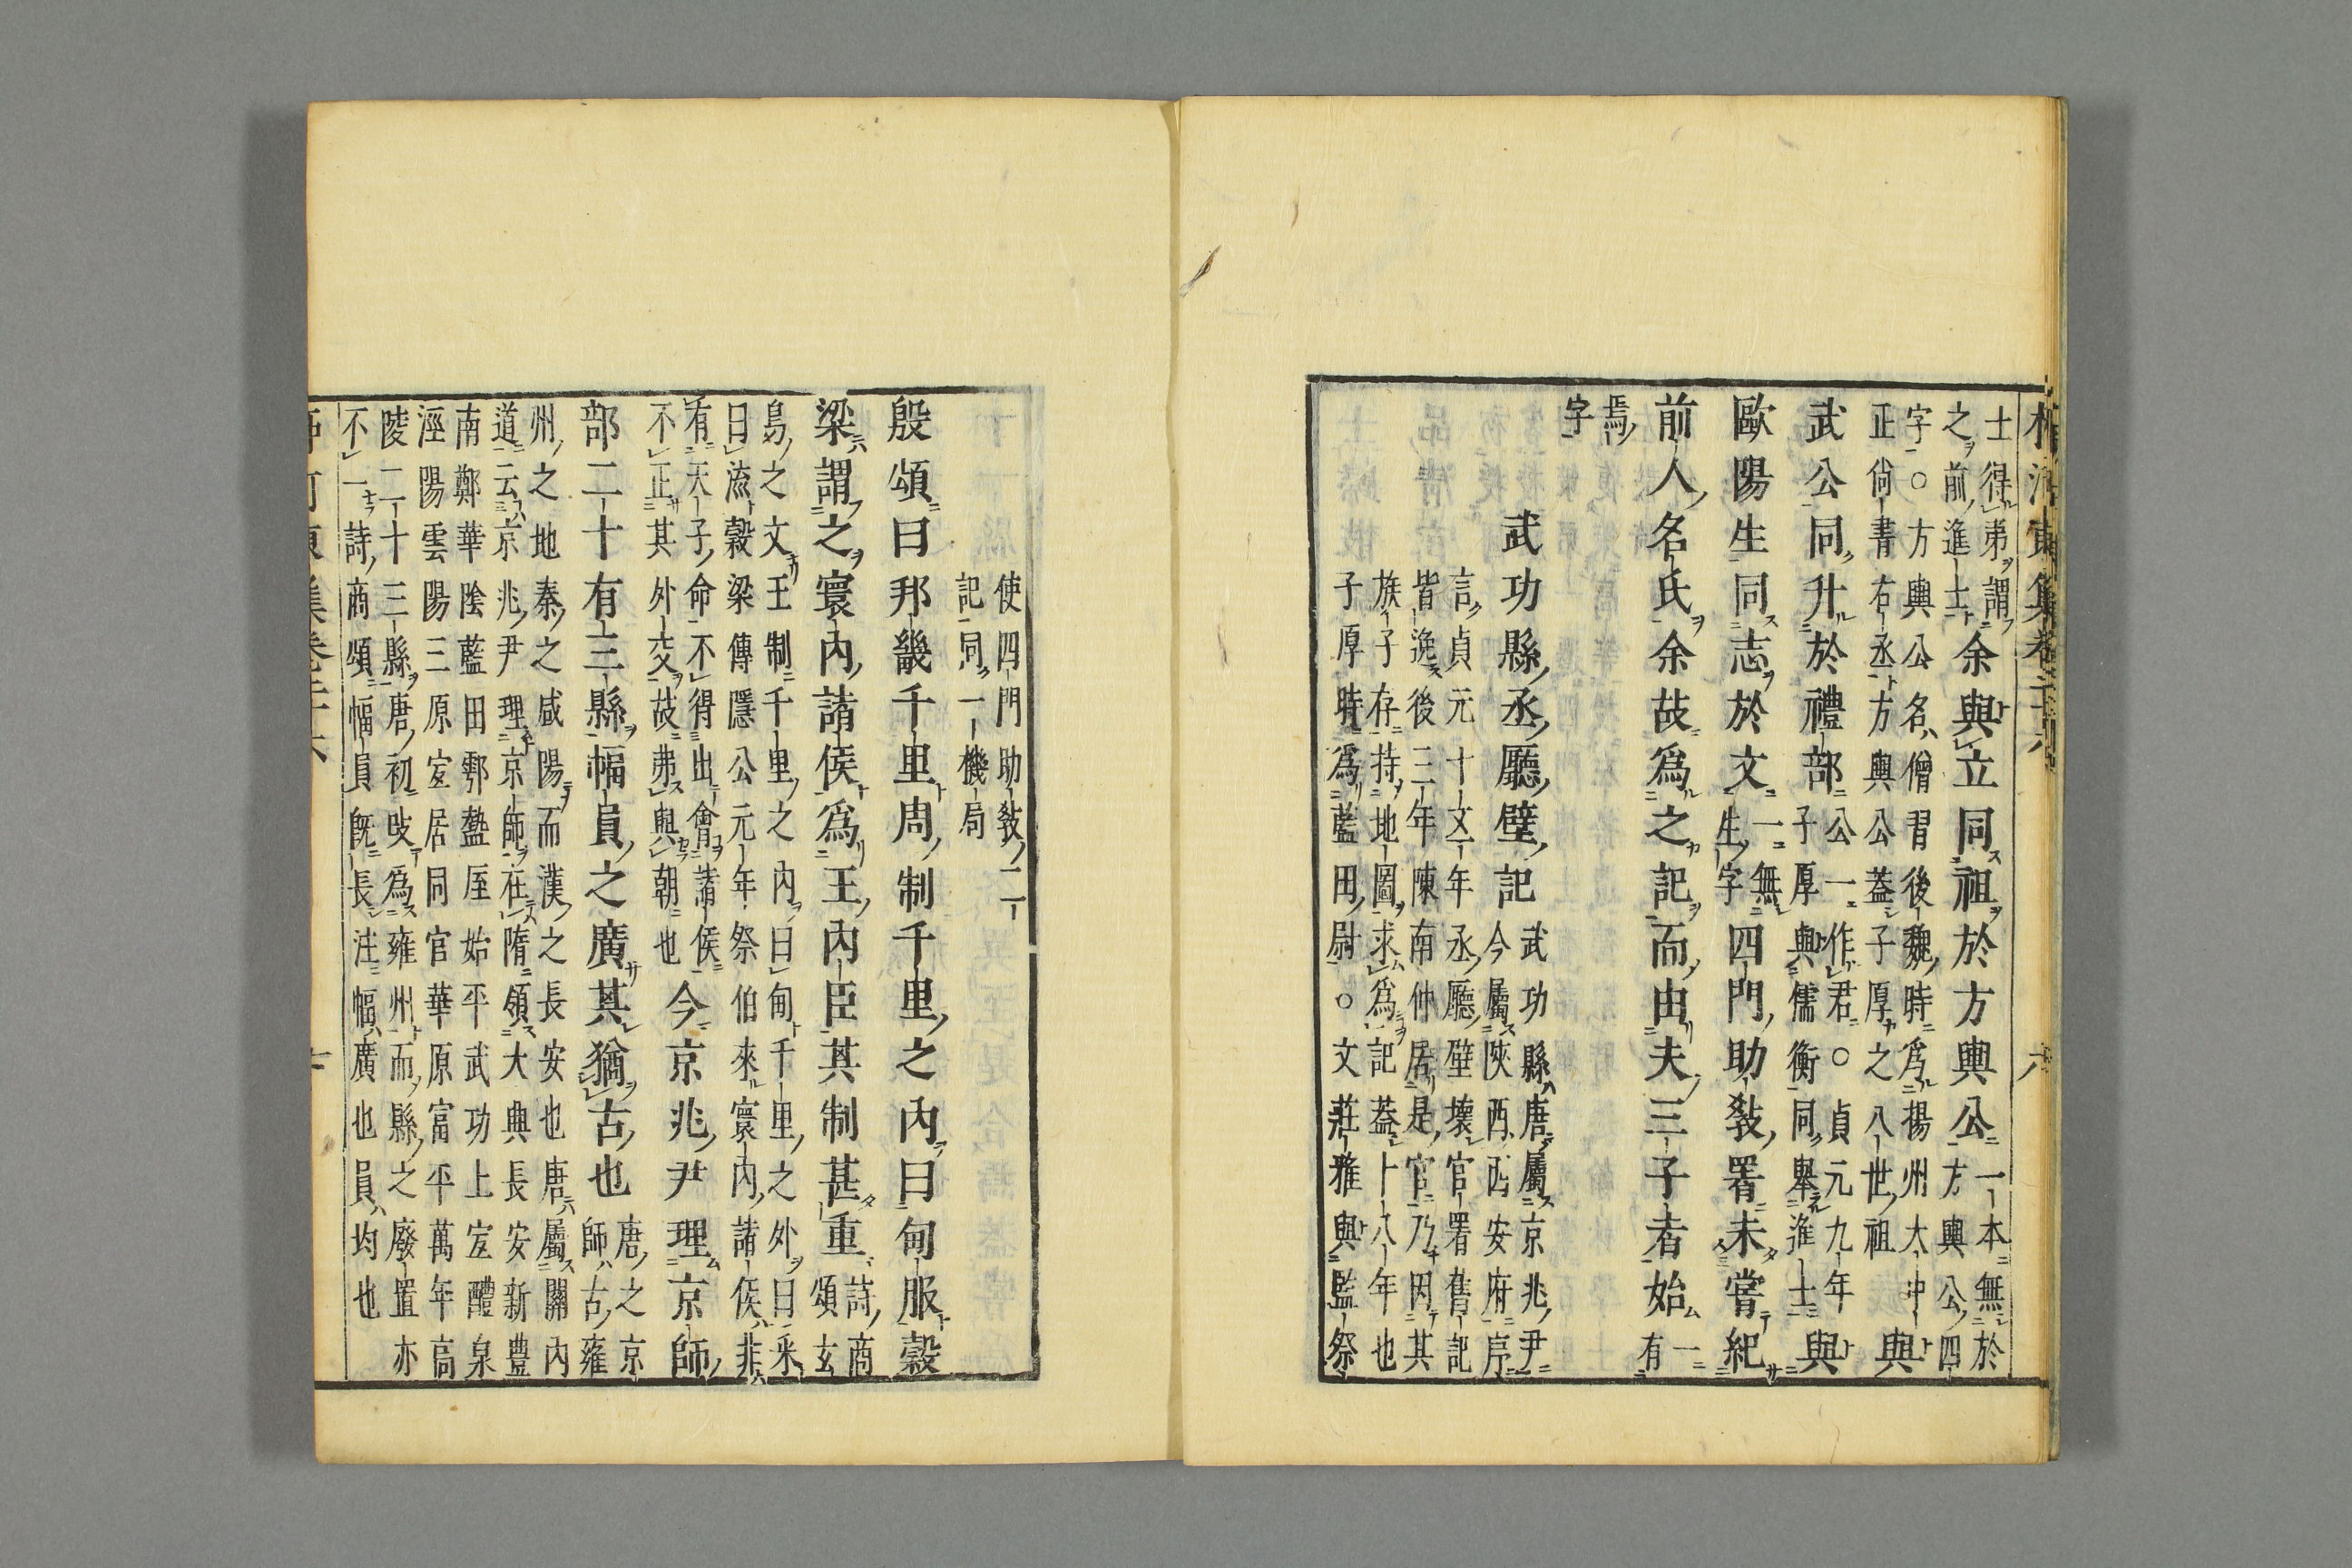 柳河東集卷之二十六 六
士得弟謂之前進士余與立同祖於方輿公一本無於方輿公四
字○方輿公名僧習後魏時爲揚州大中正尙書右丞方輿公蓋子厚之八世祖與
武公同升於禮部公一作君○貞元九年子厚與儒衡同舉進士與
歐陽生同志於文一無生字四門助敎署未嘗紀
前人名氏余故爲之記而由夫三子者始一有
焉字
武功縣丞廳壁記武功縣唐屬京兆尹今屬陝西西安府序
言貞元十五年丞廳壁壞官署舊記皆逸後三年陳南仲居是官乃因其
族子存持地圖求爲記蓋十八年也子厚時爲藍田尉○文莊雅與監祭
使四門助敎二記同一機局
殷頌曰邦畿千里周制千里之內曰甸服穀
梁謂之寰內諸侯爲王內臣其制甚重詩商頌玄
鳥之文王制千里之內曰甸千里之外曰采曰流穀梁傳隱公元年祭伯來寰內諸侯非
有天子命不得出會諸侯不正其外交故弗與朝也今京兆尹理京師
部二十有三縣幅員之廣其猶古也唐之京師古雍
州之地秦之咸陽而漢之長安也唐屬關內道云京兆尹理京師在隋領大興長安新豐
南鄭華陰藍田鄠盩厔始平武功上宜醴泉涇陽雲陽三原宜居同官華原富平萬年高
陵二十三縣唐初改爲雍州而縣之廢置亦不一詩商頌幅員旣長注幅廣也員均也